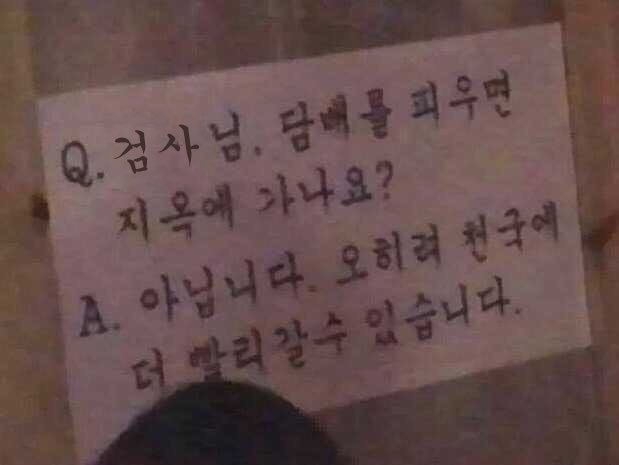 Q. 검사님. 담배를 피우면
지옥에 가나요?
A. 아닙니다. 오히려 천국에
더 빨리갈수 있습니다.